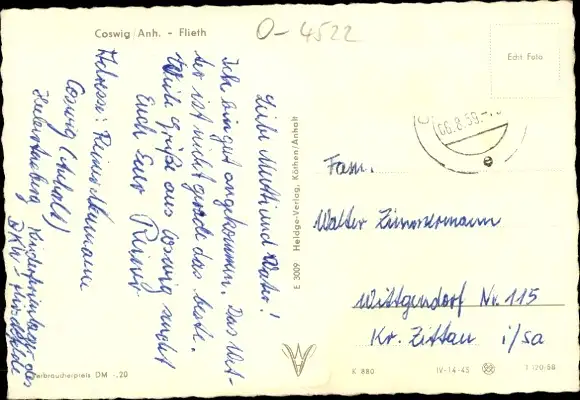 Coswig/Anh. - Flieth
O-4522
Liebe Mutti und Vater!
Ich bin gut angekommen. Das Wet-
ter ist nicht gerade das beste.
Viele Grüße aus Coswig sendet
Euch Euer Reiner
Adresse: Reiner Neumann
Coswig (Anhalt)
Kinderferienlager des
VEB Heldge-Verlag, Köthen/Anhalt
E 3009
Verbraucherpreis DM -.20
Echt Foto
06.8.59.-
e
Fam.
Walter Zimmermann
Wittgendorf Nr. 115
Kr. Zittau i/Sa
K 880
IV-14-45
1 120/58